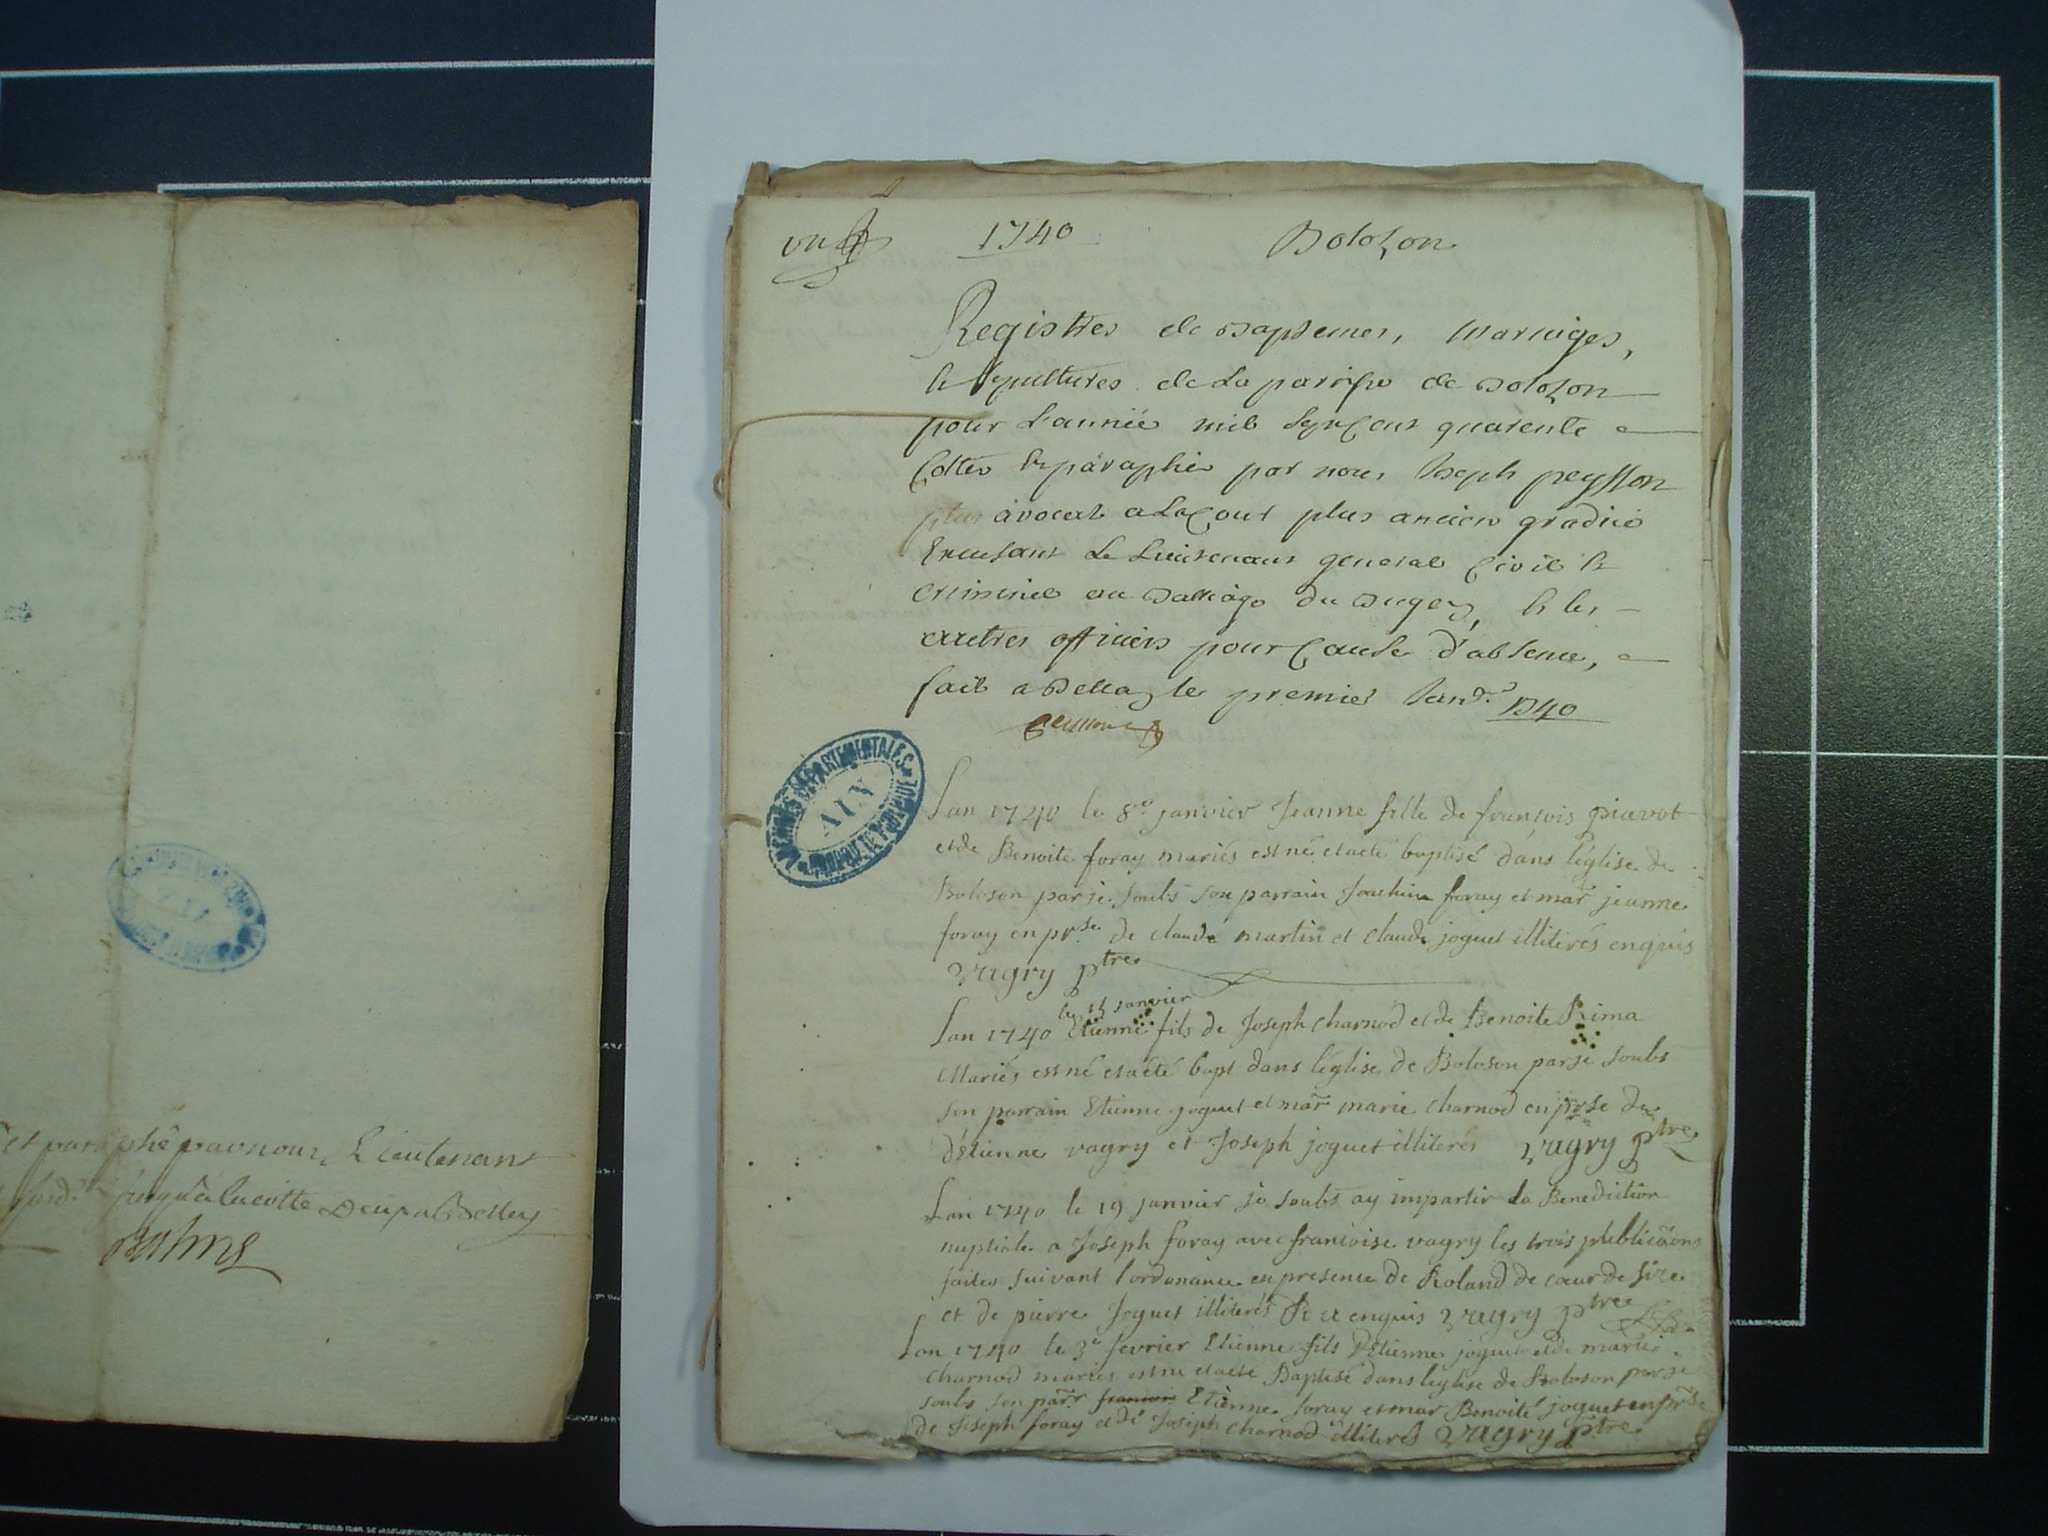 et paraphé par nous, Lieutenant
jusqu'à la cotte Deup a Belley
1740 Bolozon
Registres de Baptemes, Mariages,
& sepultures de La parroisse de Bolozon
pour L'année mil sept cens quarente
Cottés & paraphés par nous, Joseph peysson
plus avocat a La Cour plus ancien gradué
Excusant Le Lieutenant general Civil &
criminel au Balliage du Bugey, & les
autres officiers pour Cause d'absence,
fait a Belley le premier Janv.r 1740
peysson
ARCHIVES DÉPARTEMENTALES
AIN
Lan 1740 le 8e janvier Jeanne fille de francois piavot
et de Benoite foray mariés est né et a eté baptisé dans l'église de
Boloson par je soubs son parrain Joachim foray et mar jeanne
foray en prse de claude martin et claude joguet illiterés enquis
vugry ptre
le 15 janvier
Lan 1740 Etienne fils de Joseph charnod et de Benoite Rima
Mariés est né et a eté bapt dans l'église de Boloson par je soubs
son parrain Etienne joguet et mar marie charnod en prse de
d'étienne vagry et Joseph joguet illiterés vugry ptre
Lan 1740 le 19 janvier je soubs ay impartir la Benediction
nuptiale a Joseph foray avec francoise vagry les trois publicaõns
faites suivant l'ordonance en presence de Roland de cœur de size
et de pierre Joguet illiterés & a enquis vugry ptre
Lan 1740 le 3e fevrier Etienne fils d'Etienne joguet et de marie
charnod mariés est né et a eté Baptisé dans léglise de Boloson par je
soubs son parr francois Etienne foray et mar Benoité joguet en prse
de Joseph foray et de Joseph charnod illiterés vugry ptre